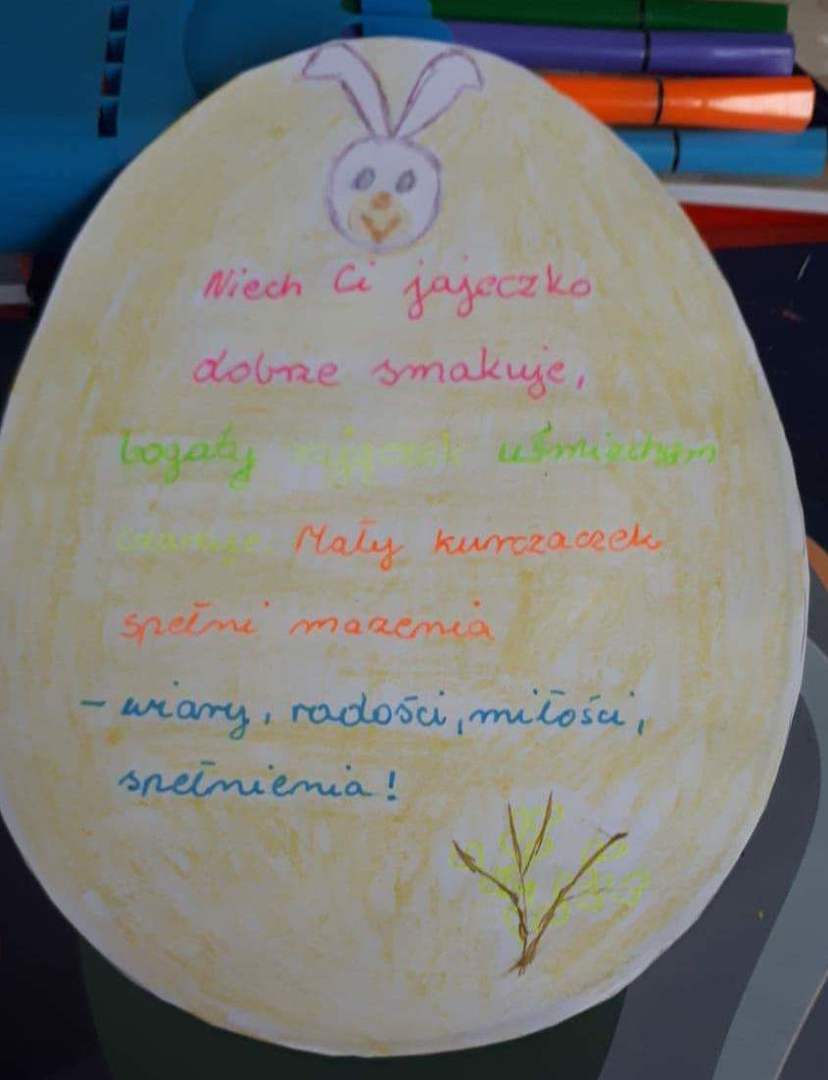 Niech Ci jajeczko
dobrze smakuje,
bogaty zajączek uśmiechem
czaruje. Mały kurczaczek
spełni marzenia
– wiary, radości, miłości,
spełnienia!